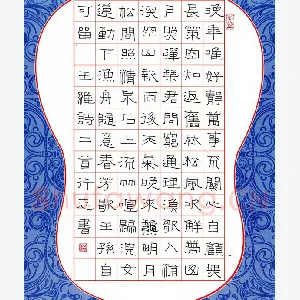 晚年唯好靜萬事不關心自顧無
長策空知返舊林松風吹解帶山
月照彈琴君問窮通理漁歌入浦
深空山新雨後天氣晚來秋明月
松間照清泉石上流竹喧歸浣女
蓮動下漁舟隨意春芳歇王孫自
可留
王維詩二首
書